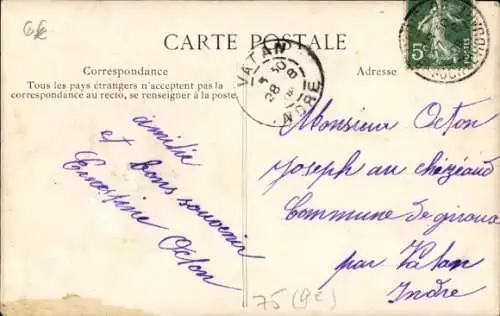 6€
CARTE POSTALE
Correspondance
Tous les pays étrangers n'acceptent pas la
correspondance au recto, se renseigner à la poste.
Adresse
VATAN
INDRE
28
5c
POSTES
amitié
et bons souvenir
Octon
Monsieur Octon
Joseph au chézéaud
Commune de giroux
par Vatan
Indre
75 (9e)